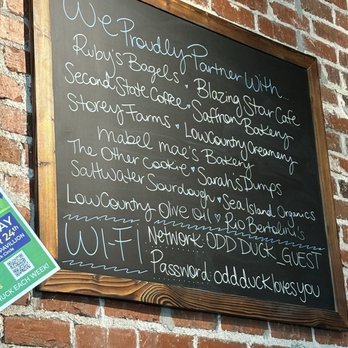 We Proudly Partner With...
Ruby's Bagels • Blazing Star Cafe
Second State Coffee • Saffron Bakery
Storey Farms • LowCountry Creamery
Mabel Mae's Bakery
The Other Cookie • Sarah's Dumps
Saltwater Sourdough • Sea Island Organics
LowCountry Olive Oil • Rio Bertolini's
WI-FI
Network: ODD DUCK GUEST
Password: oddducklovesyou
AY
24th
PAVILION
UCK EACH WEEK!